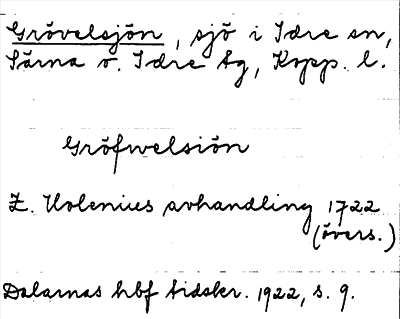 Grövelsjön, sjö i Idre sn,
Särna o. Idre tg, Kopp. l.
Gröfwelsiön
Z. Holenius avhandling 1722
(övers.)
Dalarnas hbf tidskr. 1922, s. 9.